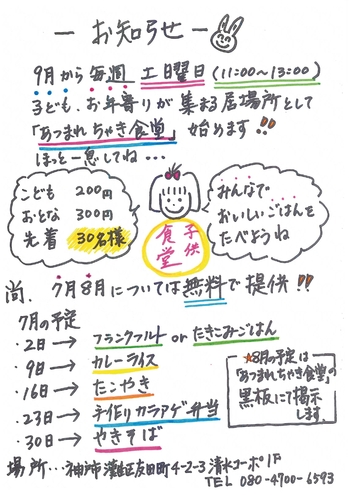 ー お知らせ ー
9月から毎週 土曜日 (11:00〜13:00)
子ども、お年寄りが集まる居場所として
「あつまれ ちゃき食堂」始めます!!
ほっと一息してね...
こども 200円
おとな 300円
先着 30名様
子供食堂
みんなで
おいしいごはんを
たべようね
尚、7月8月については無料で提供!!
7月の予定
・2日→フランクフルト or たきこみごはん
・9日→カレーライス
・16日→たこやき
・23日→手作りカラアゲ弁当
・30日→やきそば
★8月の予定は
「あつまれちゃき食堂」の
黒板にて掲示
します。
場所...神戸市灘区友田町4-2-3 清水コーポ1F
TEL 080-4700-6593